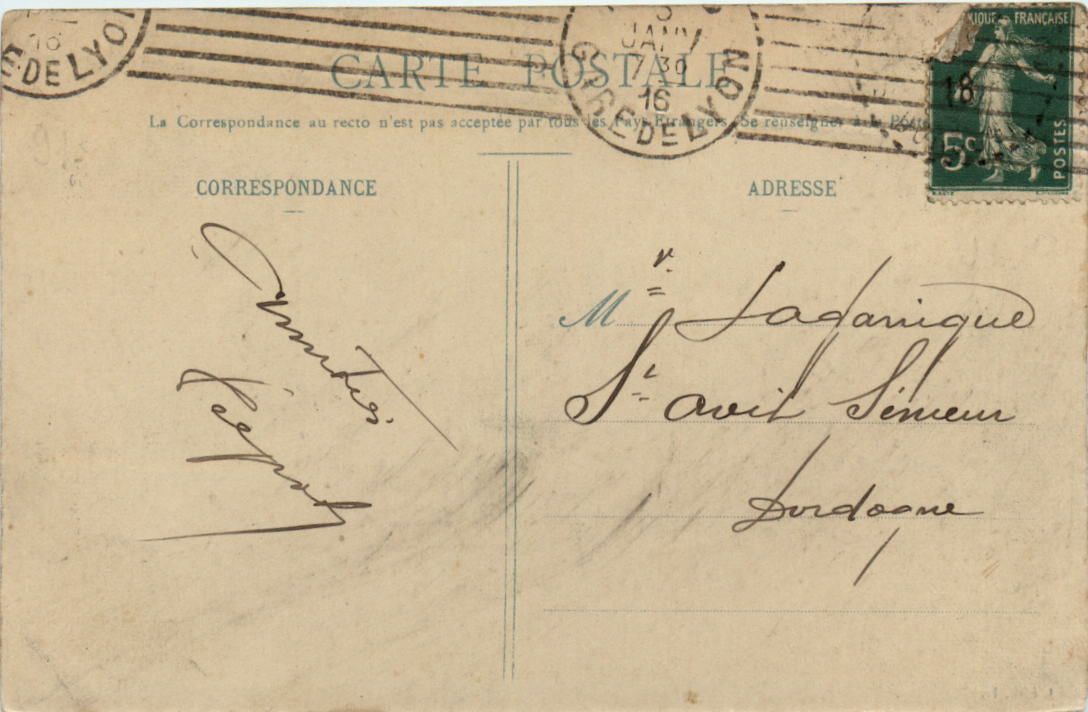 E DE LYON
16
3
JANV
7 30
16
GARE DE LYON
RÉPUBLIQUE FRANÇAISE
18
5c
POSTES
CARTE POSTALE
La Correspondance au recto n'est pas acceptée par tous les Pays Etrangers (Se renseigner à la Poste
CORRESPONDANCE
ADRESSE
Amitiés
Mr Ladarnique
St avit Sénieur
Dordogne